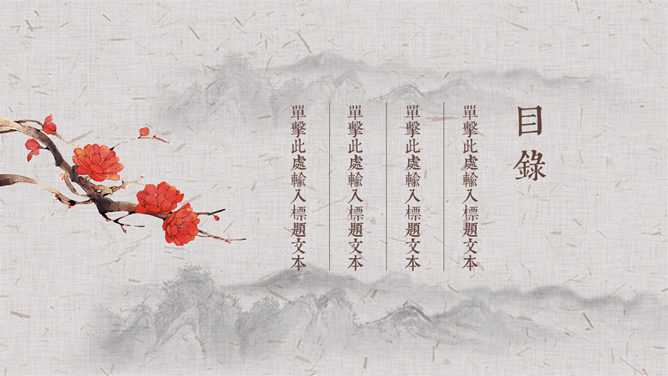 目錄
單擊此處輸入標題文本
單擊此處輸入標題文本
單擊此處輸入標題文本
單擊此處輸入標題文本